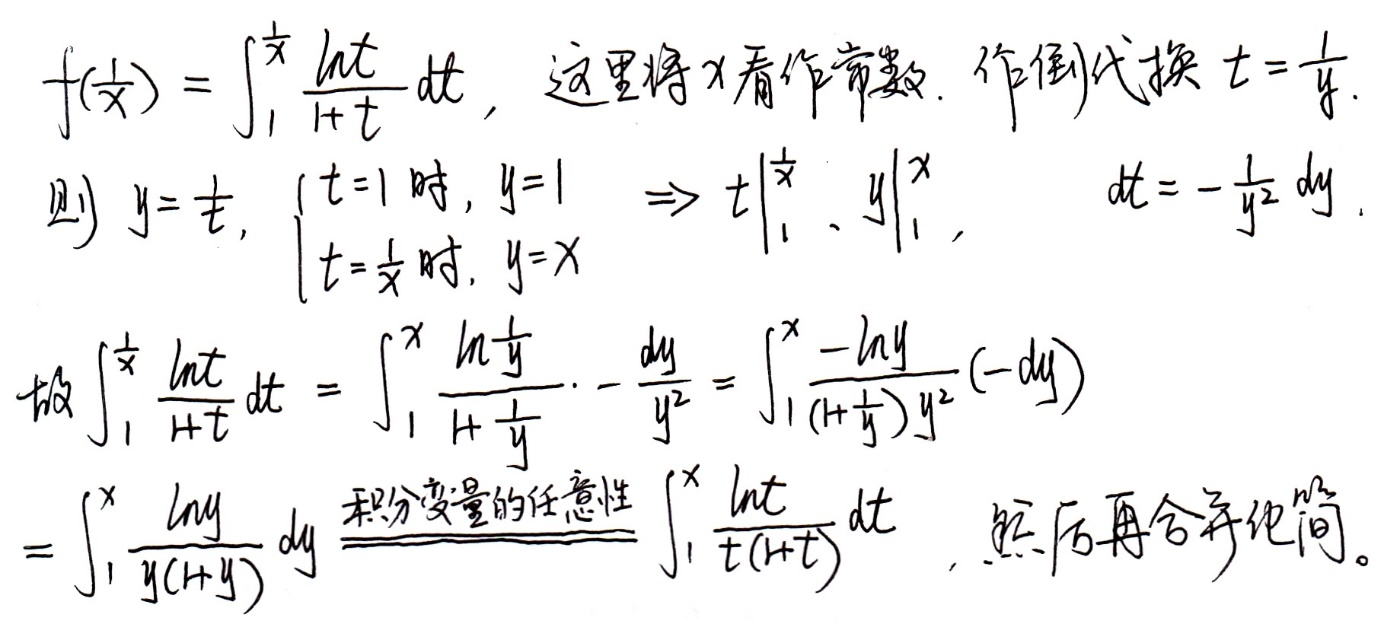 f(1/x) = ∫₁^(1/x) lnt/(1+t) dt, 这里将x看作常数. 作倒代换 t = 1/y.
则 y = 1/t, { t=1 时, y=1 ; t=1/x 时, y=x ⇒ t|₁^(1/x) 、 y|₁^x , dt = -1/y² dy .
故 ∫₁^(1/x) lnt/(1+t) dt = ∫₁^x (ln 1/y)/(1+1/y) · - dy/y² = ∫₁^x -lny/((1+1/y)y²) (-dy)
= ∫₁^x lny/(y(1+y)) dy 积分变量的任意性 ∫₁^x lnt/(t(1+t)) dt , 然后再合并化简。